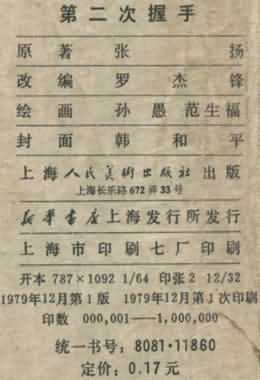 第二次握手
原著 张扬
改编 罗杰锋
绘画 孙愚 范生福
封面 韩和平
上海人民美術出版社出版
上海长乐路672弄33号
新华書店上海发行所发行
上海市印刷七厂印刷
开本 787×1092 1/64 印张2 12/32
1979年12月第1版 1979年12月第1次印刷
印数 000,001——1,000,000
统一书号：8081·11860
定价：0.17元